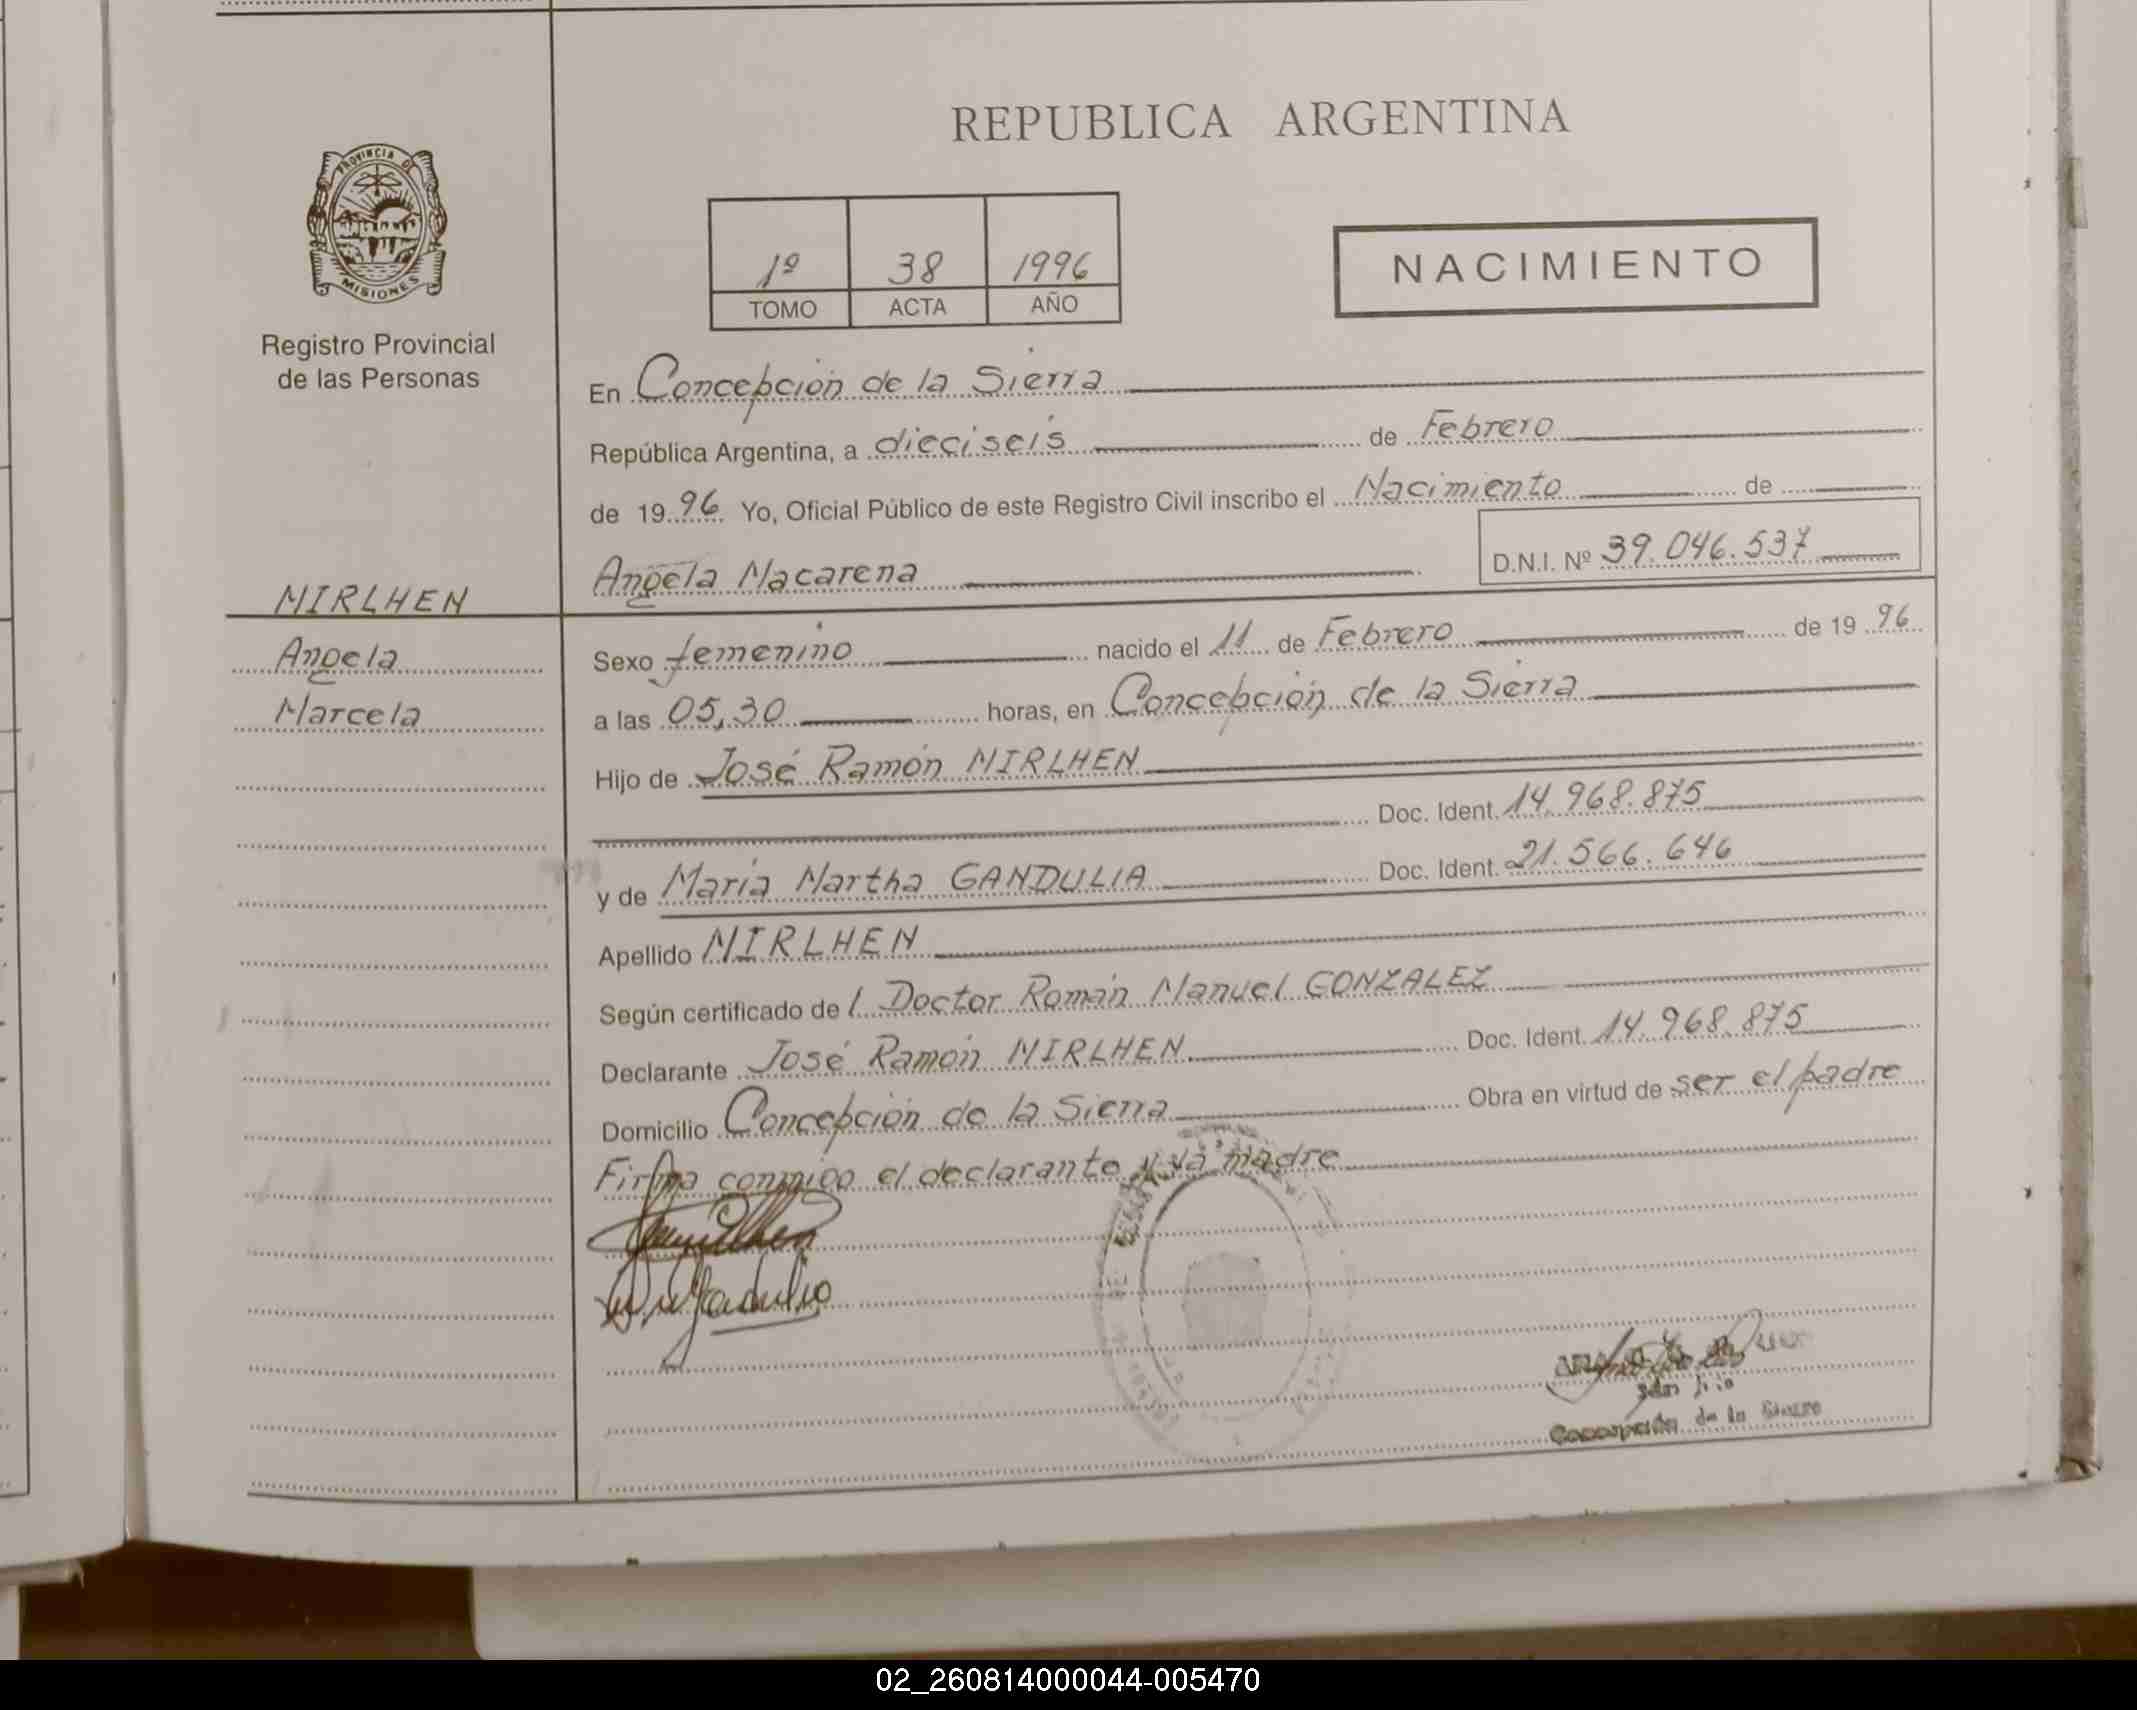 REPUBLICA ARGENTINA
PROVINCIA DE
MISIONES
Registro Provincial
de las Personas
1º 38 1996
TOMO ACTA AÑO
NACIMIENTO
En Concepción de la Sierra
República Argentina, a dieciseis de Febrero
de 1996 Yo, Oficial Público de este Registro Civil inscribo el Nacimiento de
Angela Macarena D.N.I. Nº 39.046.537
MIRLHEN
Angela
Marcela
Sexo femenino nacido el 11 de Febrero de 1996
a las 05,30 horas, en Concepción de la Sierra
Hijo de José Ramón MIRLHEN
Doc. Ident. 14.968.875
y de María Martha GANDULIA Doc. Ident. 21.566.646
Apellido MIRLHEN
Según certificado de l Doctor Román Manuel GONZALEZ
Declarante José Ramón MIRLHEN Doc. Ident. 14.968.875
Domicilio Concepción de la Sierra Obra en virtud de ser el padre
Firma conmigo el declarante y la madre
Concepción de la Sierra
02_260814000044-005470